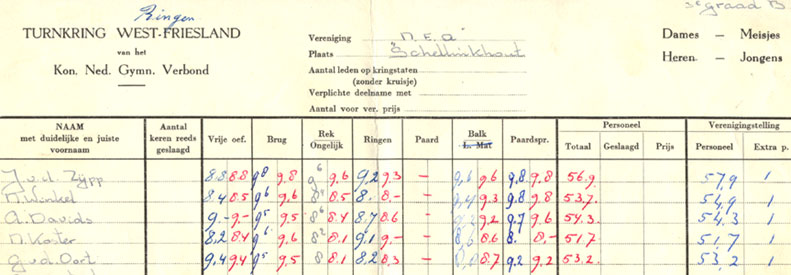 Ringen
3e graad B.
TURNKRING WEST-FRIESLAND
van het
Kon. Ned. Gymn. Verbond
Vereniging „N.E.A."
Plaats Schellinkhout
Aantal leden op kringstaten
(zonder kruisje)
Verplichte deelname met
Aantal voor ver. prijs
Dames — Meisjes
Heren — Jongens
NAAM
met duidelijke en juiste
voornaam
Aantal
keren reeds
geslaagd
Vrije oef. Brug Rek
Ongelijk Ringen Paard Balk
L. Mat Paardspr. Personeel
Totaal Geslaagd Prijs Verenigingstelling
Personeel Extra p.
J. v.d. Zijpp 8.8 8.8 9.8 9.8 9.6 9.6 9.2 9.3 — 9.6 9.6 9.8 9.8 56.9. 57,9 1
N. Winkel 8.4 8.5 9.6 9.6 8.5 8. 8.- — 9.4 9.3 9.8 9.8 53.7. 54,9 1
A. Davids 9.- 9.- 9.5 9.5 8.6 8.4 8.7 8.6 — 9.2 9.7 9.6 54.3. 54,3 1
N. Koster 8.2 8.4 9.6 9.6 8.2 8.1 9.1 9.- — 8.6 8.6 8. 8.- 51.7 51,7 1
G. v.d. Oort 9.4 9.4 9.5 9.5 8 8.1 8.2 8.3 — 8.7 9.2 9.2 53.2. 53,2 1